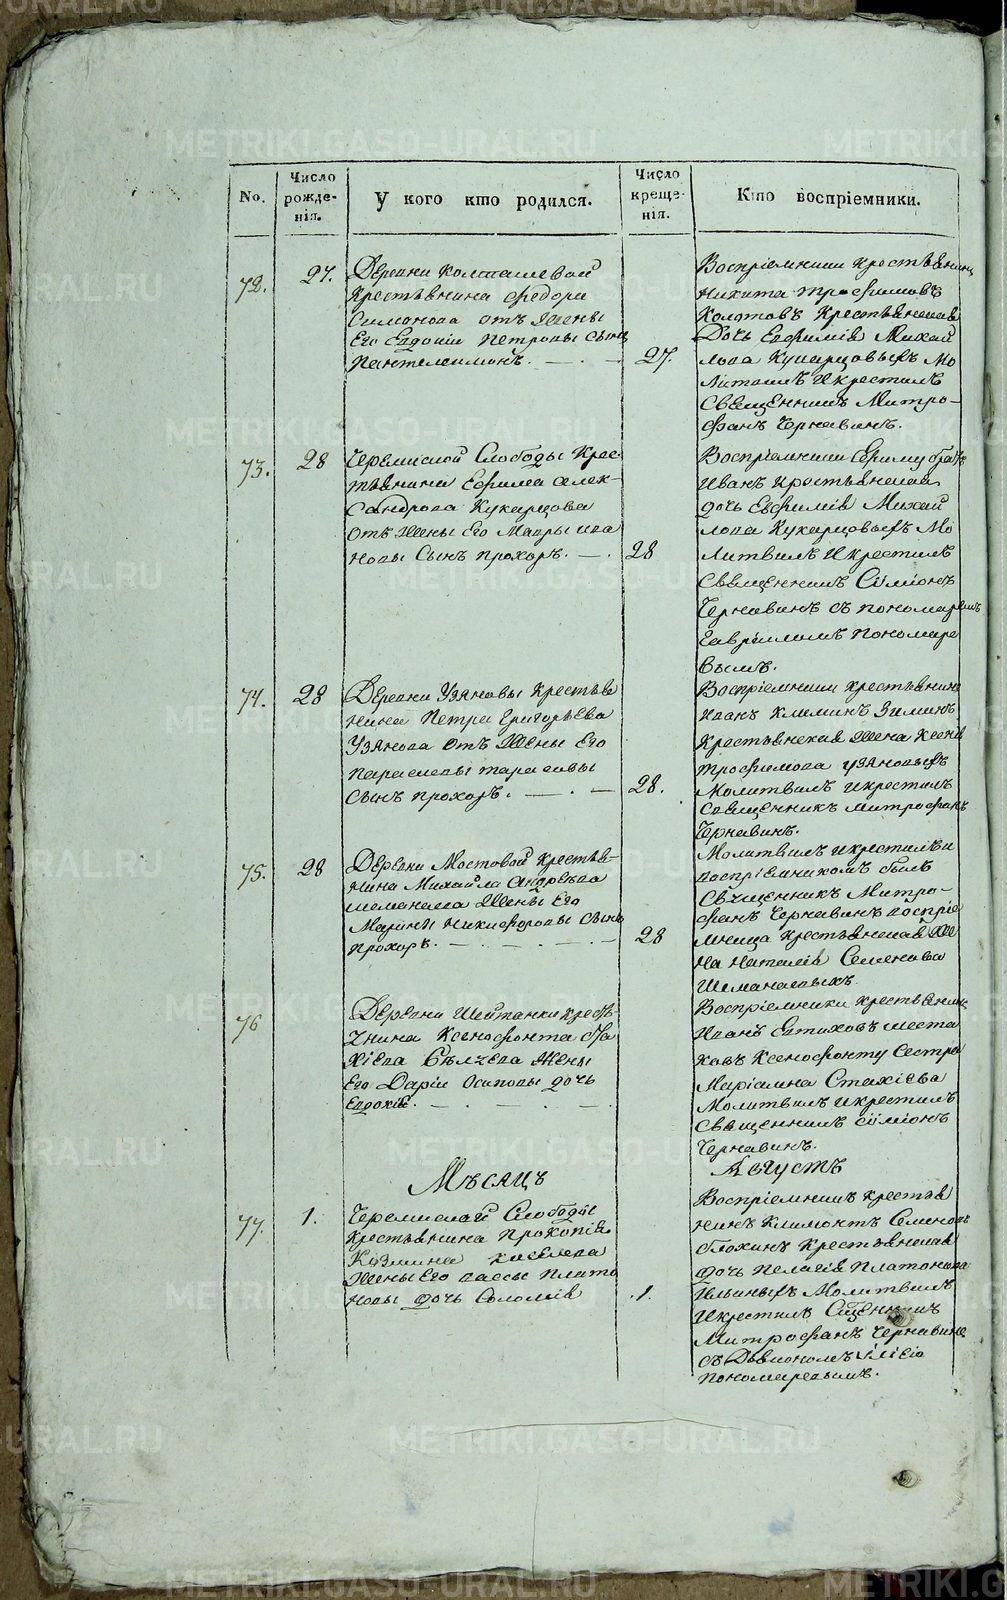 No.
Число
рожде-
нія.
У кого кто родился.
Число
креще-
нія.
Кто воспріемники.
72.
27.
Деревни Колташевой
Крестьянина Федора
Симонова отъ Жены
Его Евдокіи Петровы Сынъ
Пантелеимонъ.
27.
Воспріемники Крестьянинъ
Никита Трофимовъ
Колотовъ Крестьянская
Дочь Евфимія Михай
лова Кукарцовыхъ Мо
литвилъ И крестилъ
Священникъ Митро-
фанъ Чернавинъ.
73.
28
Черемиской Слободы Крес
тьянина Ефима Алек-
сандрова Кукарцова
Отъ Жены Его Мавры ива
новы Сынъ прохоръ.
28
Воспріемники Ефиму братъ
Иванъ Крестьянская
дочь Евфимія Михай
лова Кукарцовыхъ Мо
литвилъ И крестилъ
Священникъ Симіонъ
Чернавинъ съ пономаремъ
Гавріиломъ Пономаре
вымъ.
74.
28
Деревни Узяновы Крестья
нина Петра Григорьева
Узянова Отъ Жены Его
Парасковьи тарасовы
Сынъ прохоръ.
28.
Воспріемники Крестьянинъ
Иванъ Климинъ Зиминъ
Крестьянская Жена Ксенія
Трофимова узяновыхъ
Молитвилъ и крестилъ
Священникъ митрофанъ
Чернавинъ.
75.
28
Деревни Мостовой Крестья-
нина Михайла Андреева
шеманаева Жены Его
Марины Никифоровы Сынъ
Прохоръ.
28
Молитвилъ и крестилъ и
воспріемникомъ былъ
Священникъ Митро-
фанъ Чернавинъ воспріе
мница крестьянская Же
на Наталія Семенова
Шеманаевыхъ.
76
Деревни Шайтанки крестья-
Его Даріи Осиповы дочь
Евдокія.
Воспріемники крестьянинъ
Иванъ Евтиховъ шеста
ковъ Ксенофонту Сестра
Маріамна Стахіева
Молитвилъ и крестилъ
Священникъ Симіонъ
Чернавинъ.
Мѣсяцъ
Августъ
77.
1.
Черемиской Слободы
Крестьянина Прокопія
Кузмина киселева
Жены Его вассы Плато
новы дочь Соломія
1.
Воспріемники крестья
нинъ Климонтъ Семеновъ
блохинъ Крестьянская
дочь Пелагія Платонова
Ильиныхъ Молитвилъ
И крестилъ Сщенникъ
Митрофанъ Чернавинъ
Пономаревымъ.
METRIKI.GASO-URAL.RU